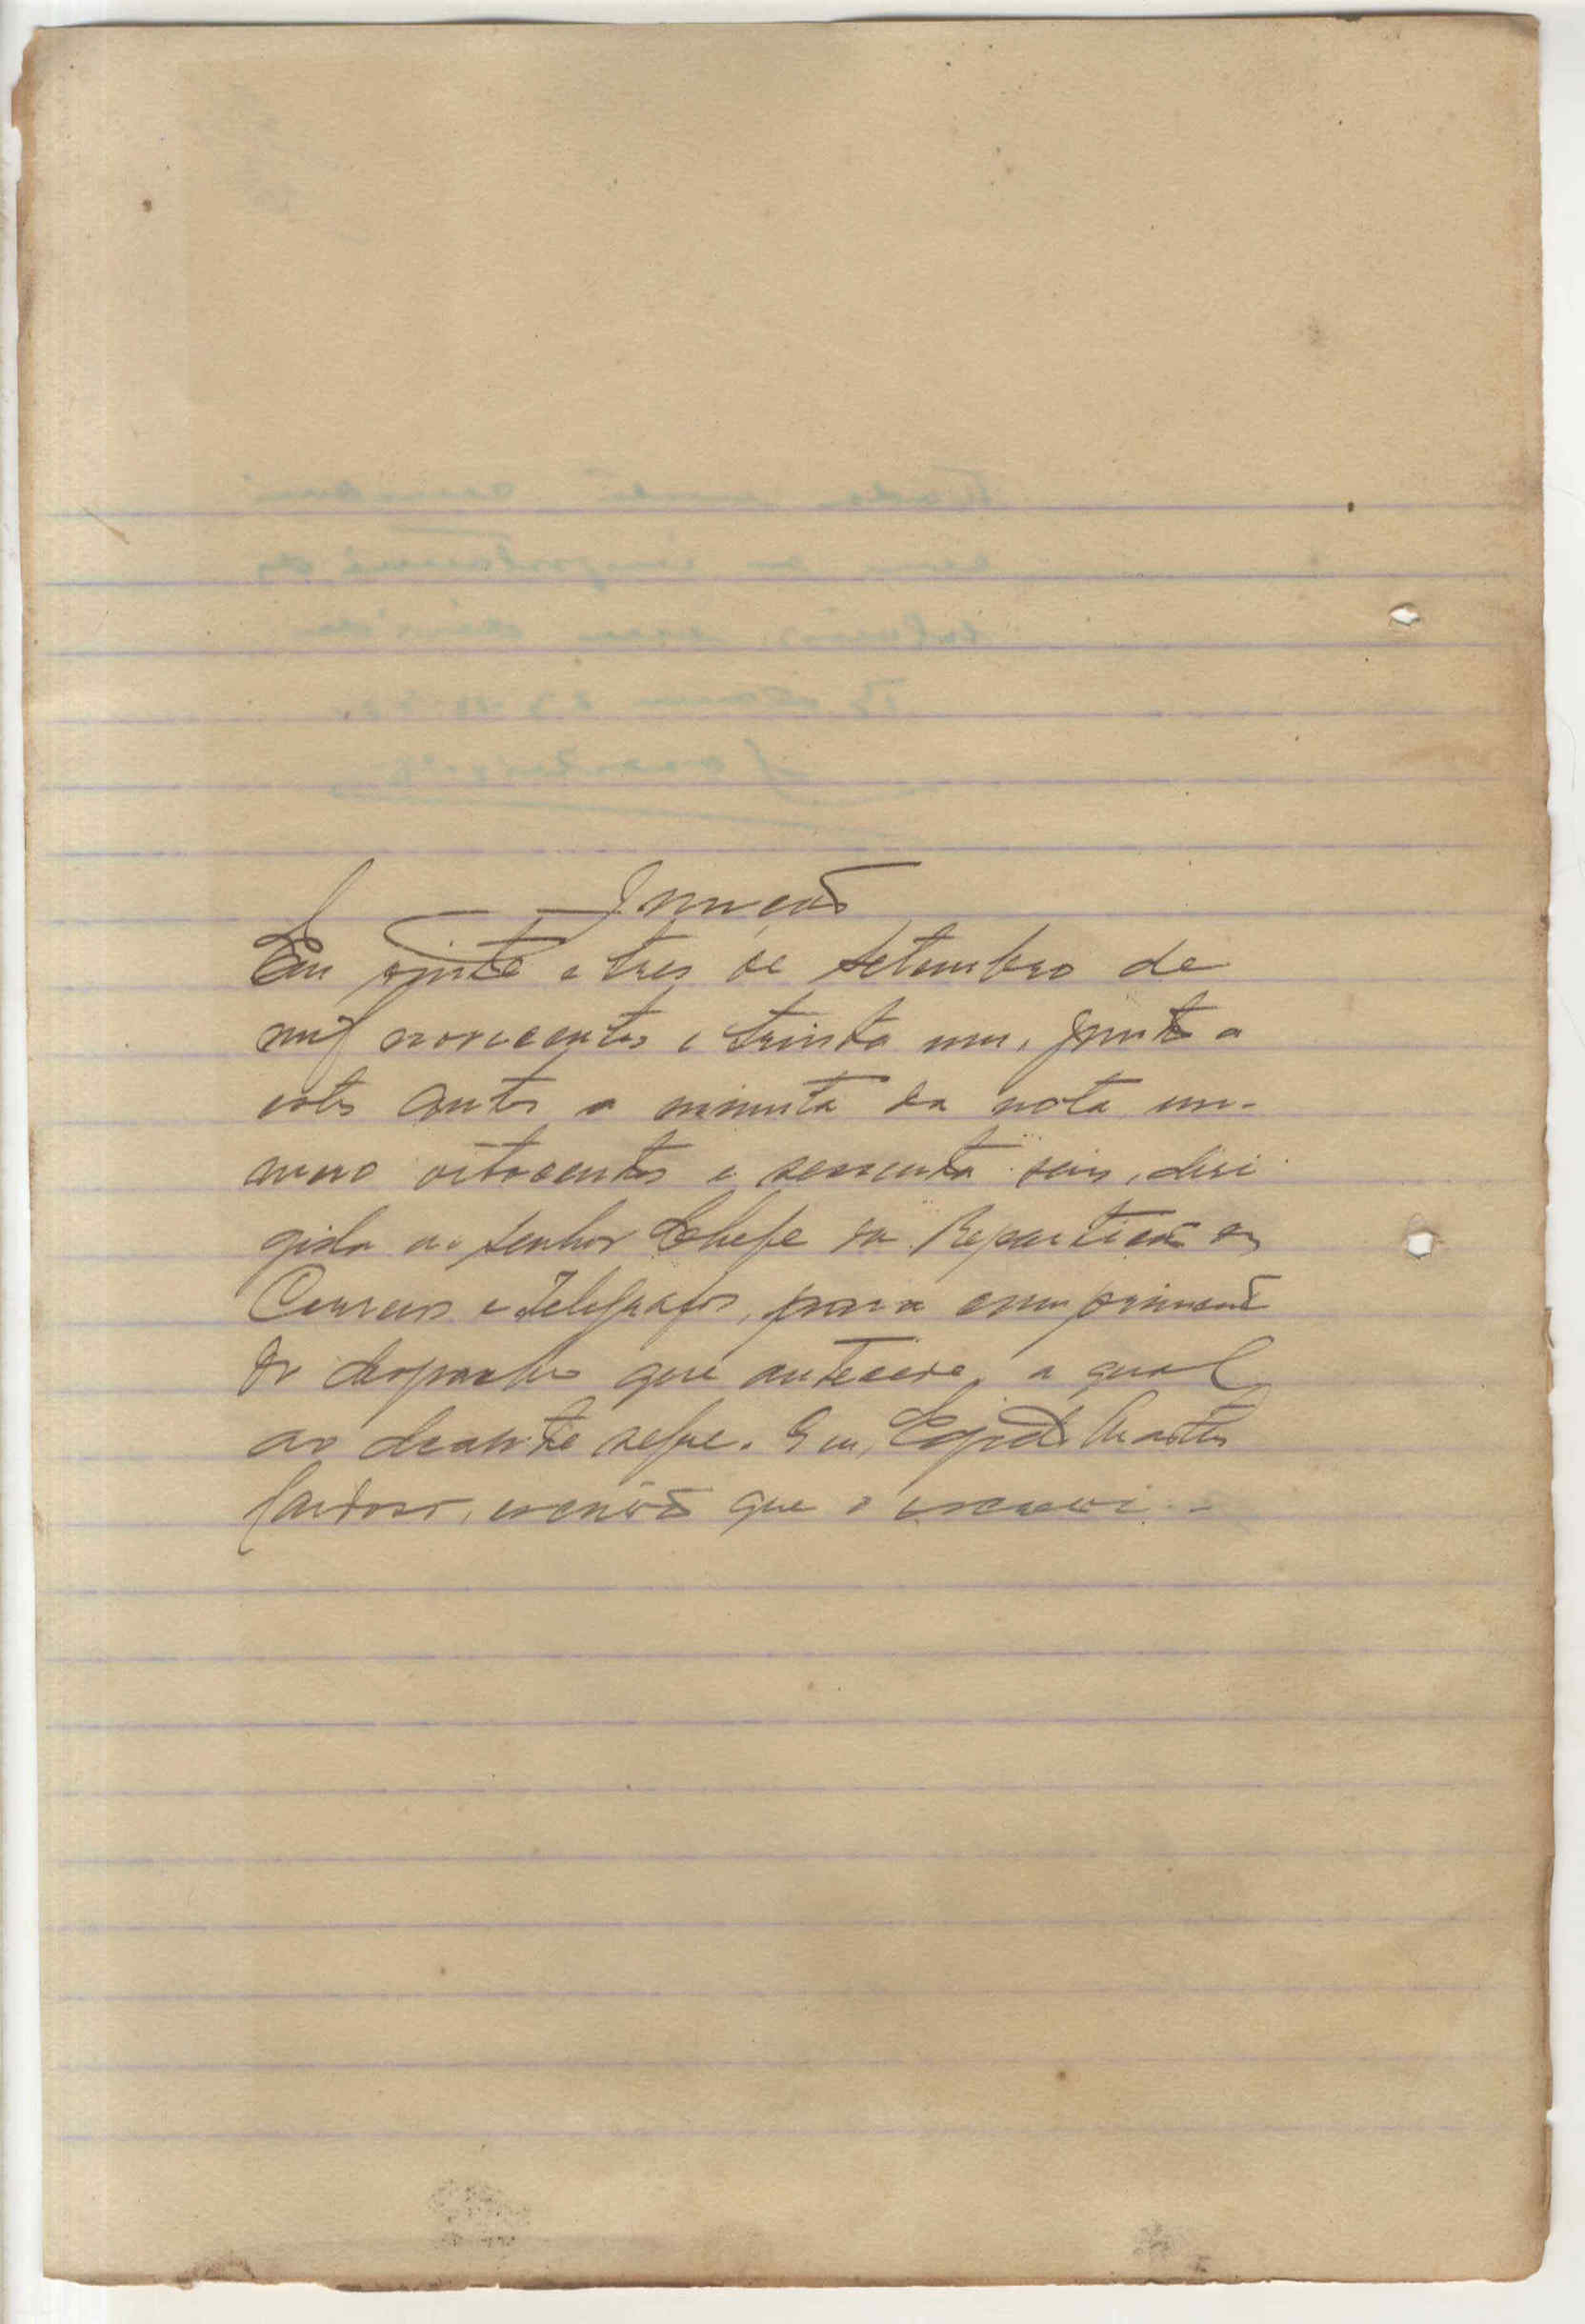 Junção
Em vinte e tres de Setembro de
mil novecentos e trinta um, junto a
estes autos a minuta da nota nu-
mero oitocentos e sessenta seis, diri
gida ao senhor Chefe da Repartição dos
Correios e Telegrafos, para cumprimento
do despacho que antecede, a qual
ao deante segue. Eu, Martins
Cardoso, escrivão que o escrevi. -